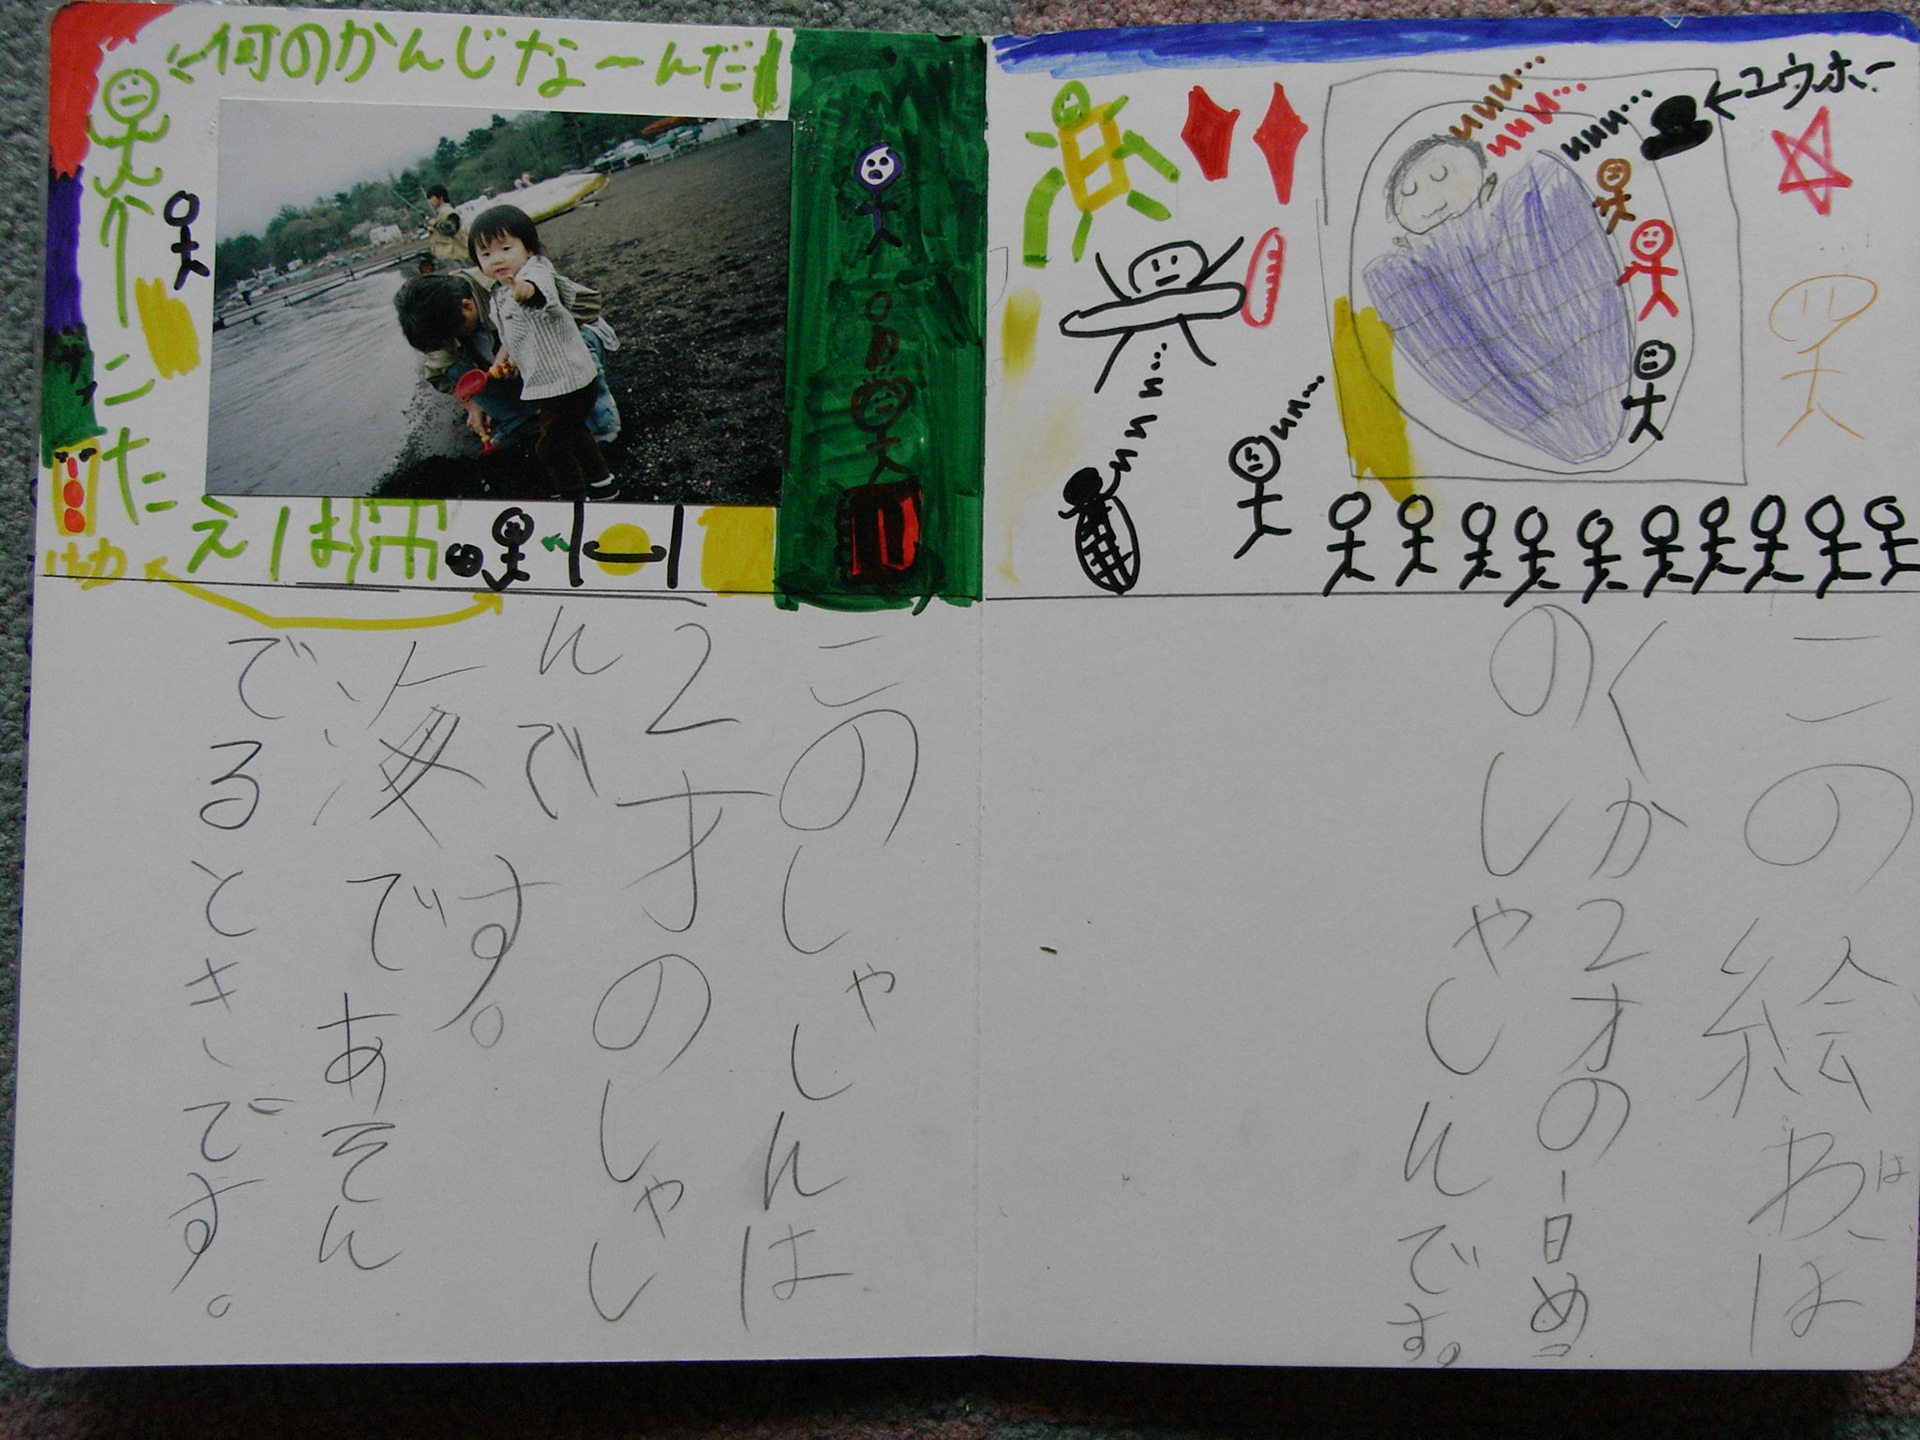 何のかんじなーんだ
こたえは
ユウホー
この絵わは
は
くか2才の1日めっ
のしゃしんです。
このしゃしんは
2才のしゃし
んです。
海であそん
でるときです。